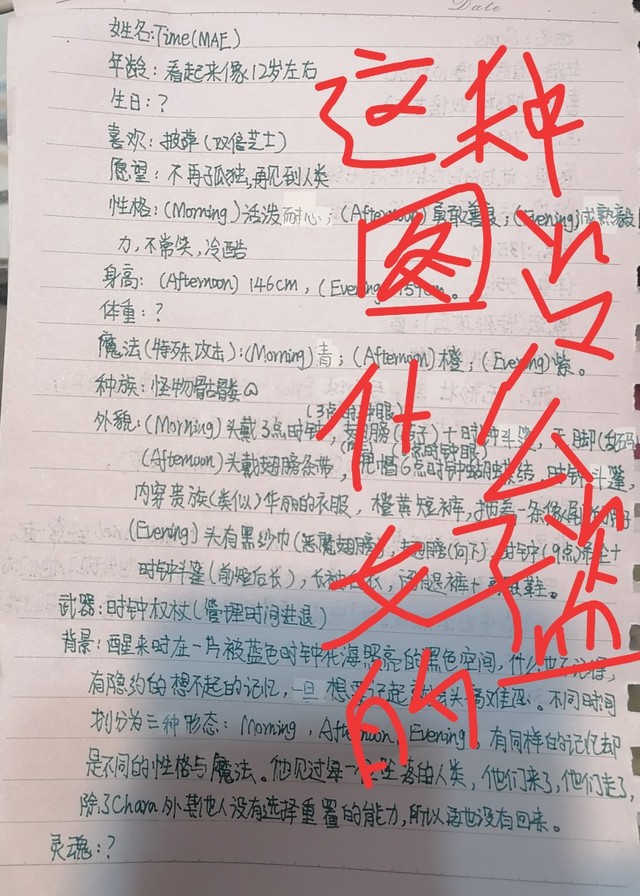 Date
姓名:Time(MAE)
年龄:看起来像12岁左右
生日:?
喜欢:披萨(双倍芝士)
愿望:不再孤独,再见到人类
性格:(Morning)活泼耐心;(Afternoon)勇敢善良;(Evening)成熟毅
力,不常笑,冷酷
身高:(Afternoon)146cm,(Evening)159cm。
体重:?
魔法(特殊攻击):(Morning)青;(Afternoon)橙;(Evening)紫。
种族:怪物骷髅
外貌:(Morning)头戴3点时钟,翅膀 + 时钟斗篷,
(Afternoon)头戴翅膀条带, 6点时钟蝴蝶结,时钟斗篷,
内穿贵族(类似)华丽的衣服,橙黄短裤,拖着一条像尾
(Evening)头有黑纱巾(恶魔翅膀), 翅膀(向下),时钟(9点) +
时钟斗篷(前短后长),长袖 裤 鞋。
武器:时钟权杖(管理时间进退)
背景:醒来时在一片被蓝色时钟花海照亮的黑色空间,什么也不记得,
有隐约的想不起的记忆,一旦想要 起 头痛难忍。不同时间
划分为三种形态:Morning,Afternoon,Evening,有同样的记忆却
是不同的性格与魔法。他见过每一 坠落的人类,他们来了,他们走了,
除了Chara外其他人没有选择重置的能力,所以再也没有回来。
灵魂:?
这种
图当
什么
女子盗
的